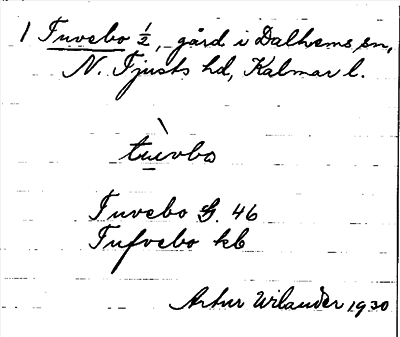 1 Tuvebo 1/2, gård i Dalhems sn,
N. Tjusts hd, Kalmar l.
tùvbo
Tuvebo G. 46
Tufvebo kb
Artur Wilander 1930